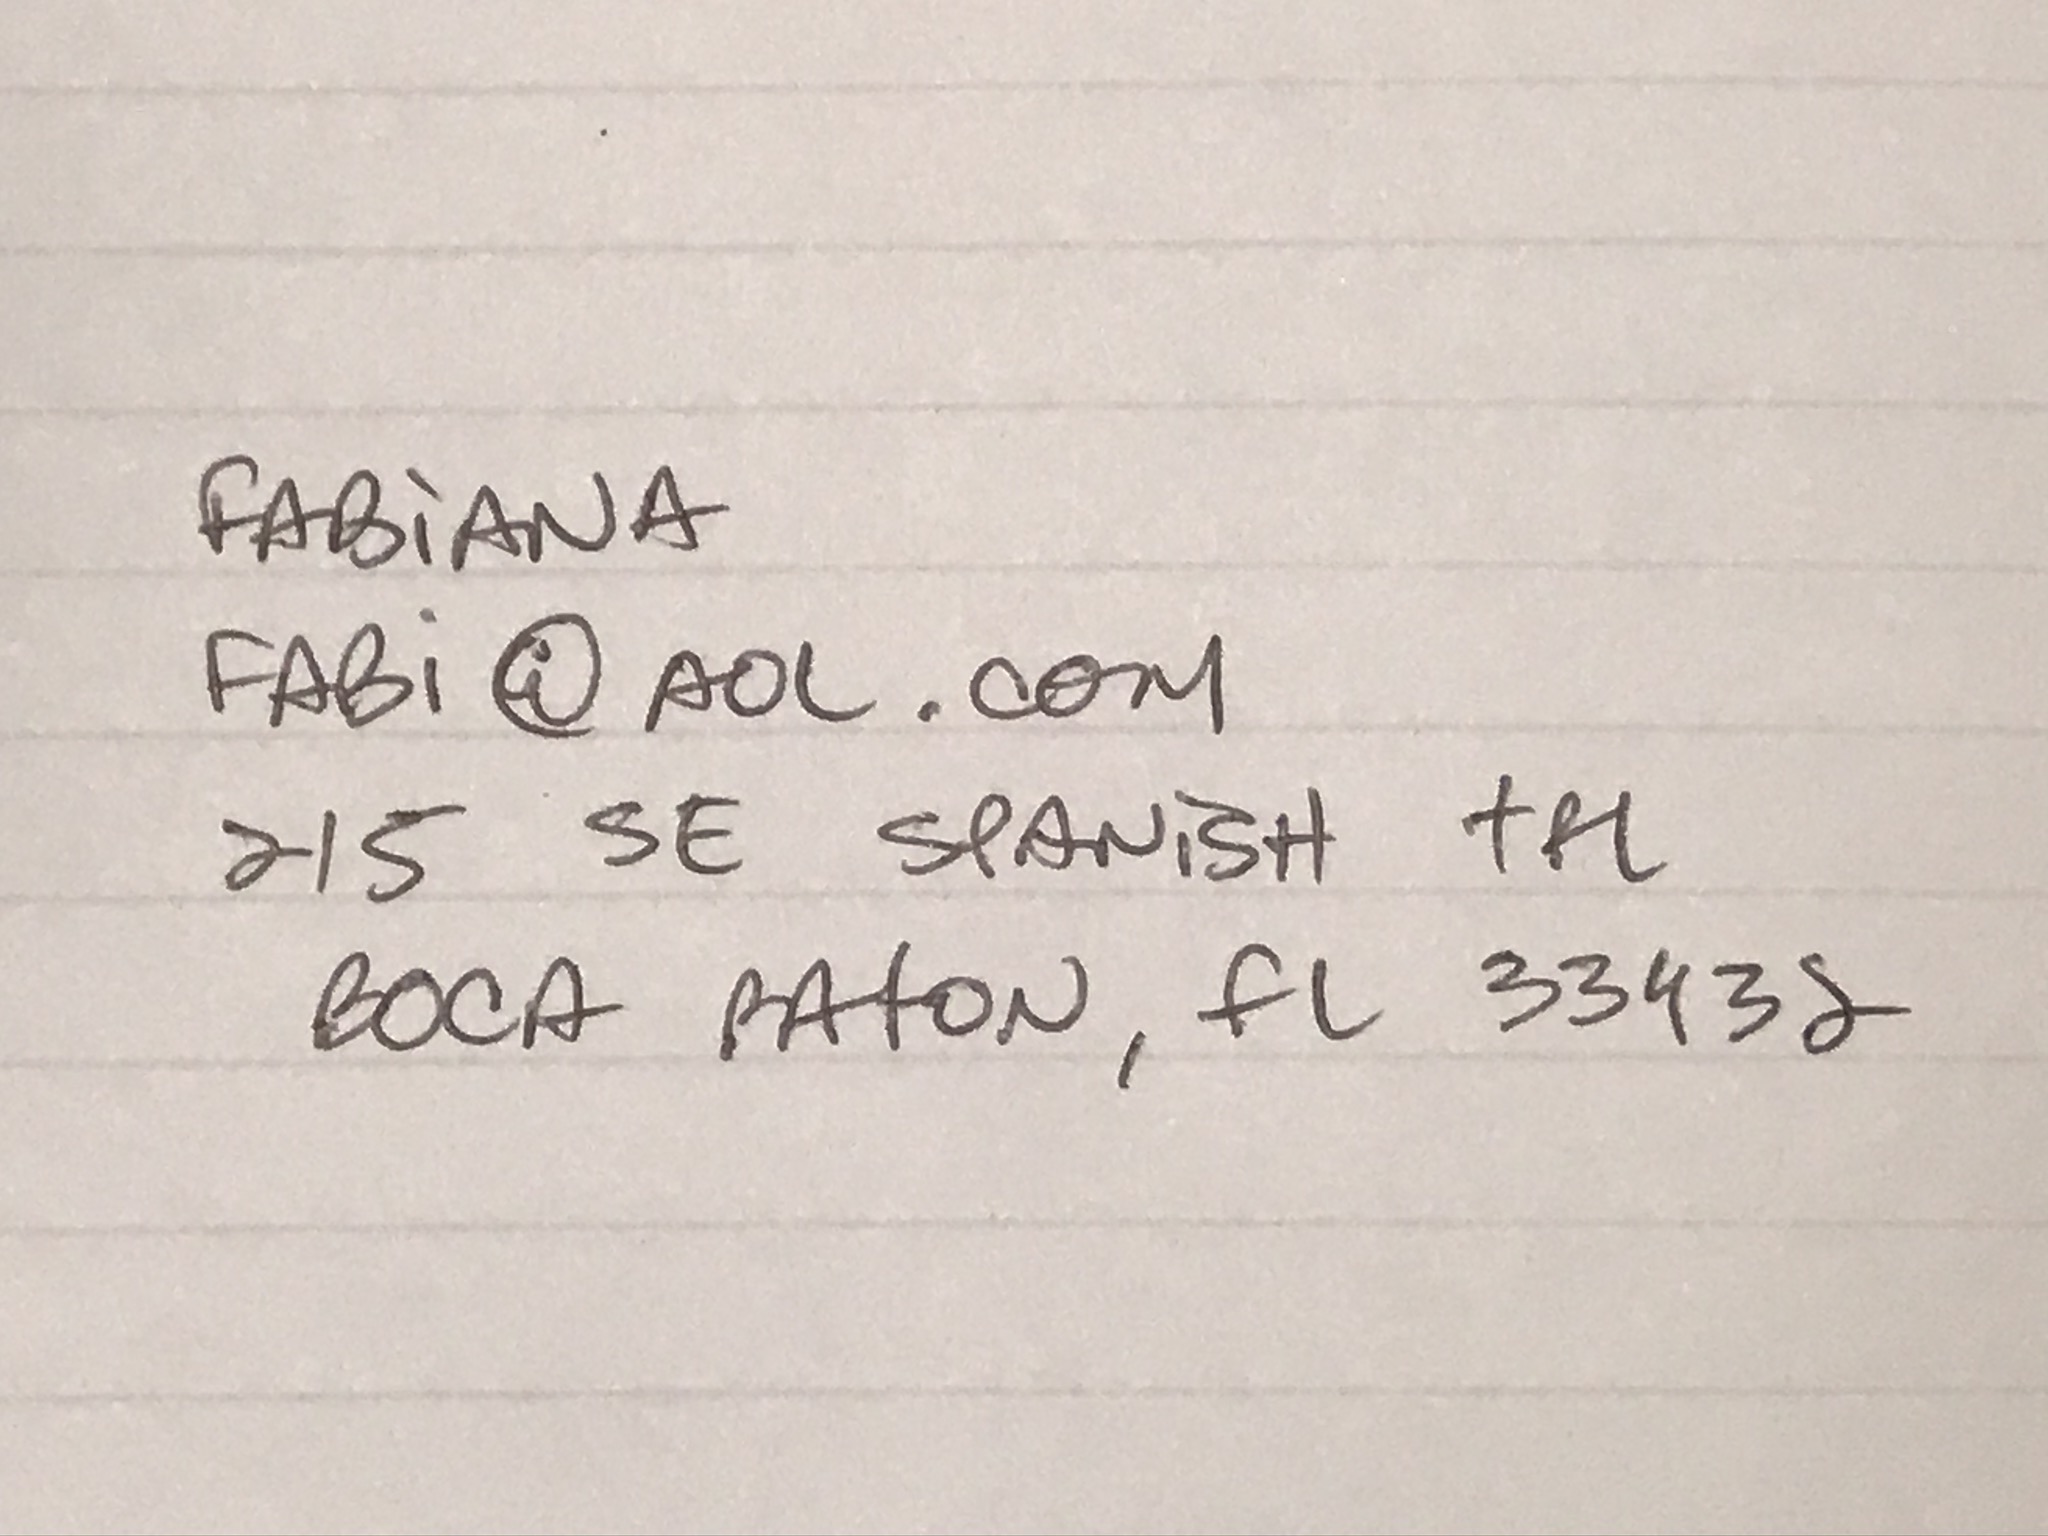 FABiANA
FABi@AOL.COM
215 SE SPANiSH tRL
BOCA RAtON, FL 33432